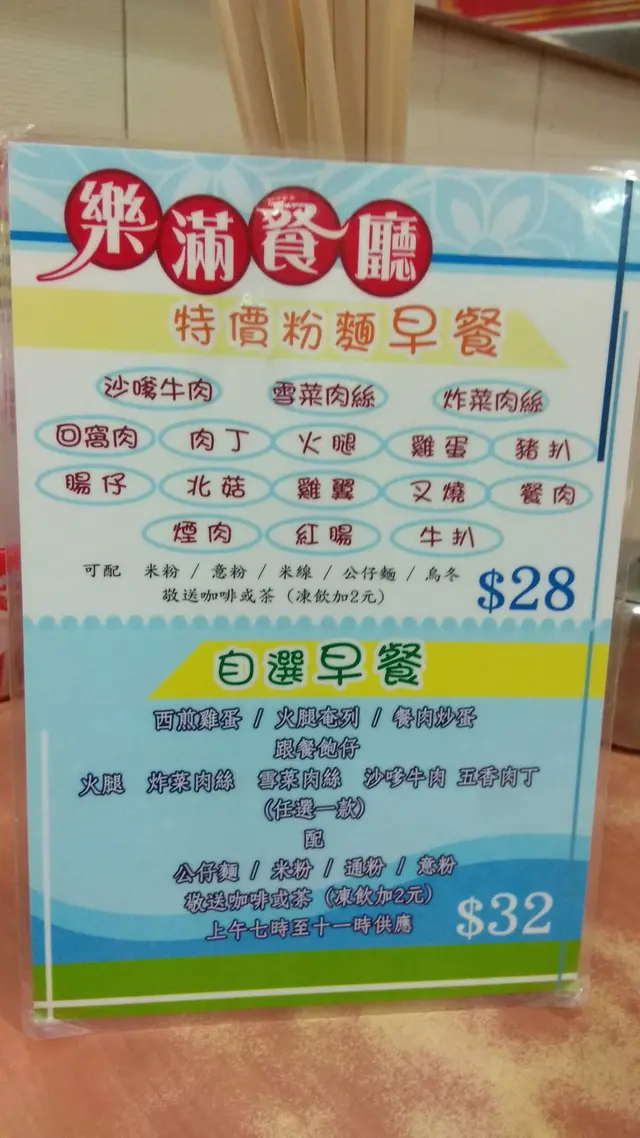 樂滿餐廳
特價粉麵早餐
沙嗲牛肉 雪菜肉絲 炸菜肉絲
回窩肉 肉丁 火腿 雞蛋 豬扒
腸仔 北菇 雞翼 叉燒 餐肉
煙肉 紅腸 牛扒
可配 米粉 / 意粉 / 米線 / 公仔麵 / 烏冬
敬送咖啡或茶 (凍飲加2元)
$28
自選早餐
西煎雞蛋 / 火腿奄列 / 餐肉炒蛋
跟餐飽仔
火腿 炸菜肉絲 雪菜肉絲 沙嗲牛肉 五香肉丁
(任選一款)
配
公仔麵 / 米粉 / 通粉 / 意粉
敬送咖啡或茶 (凍飲加2元)
上午七時至十一時供應
$32